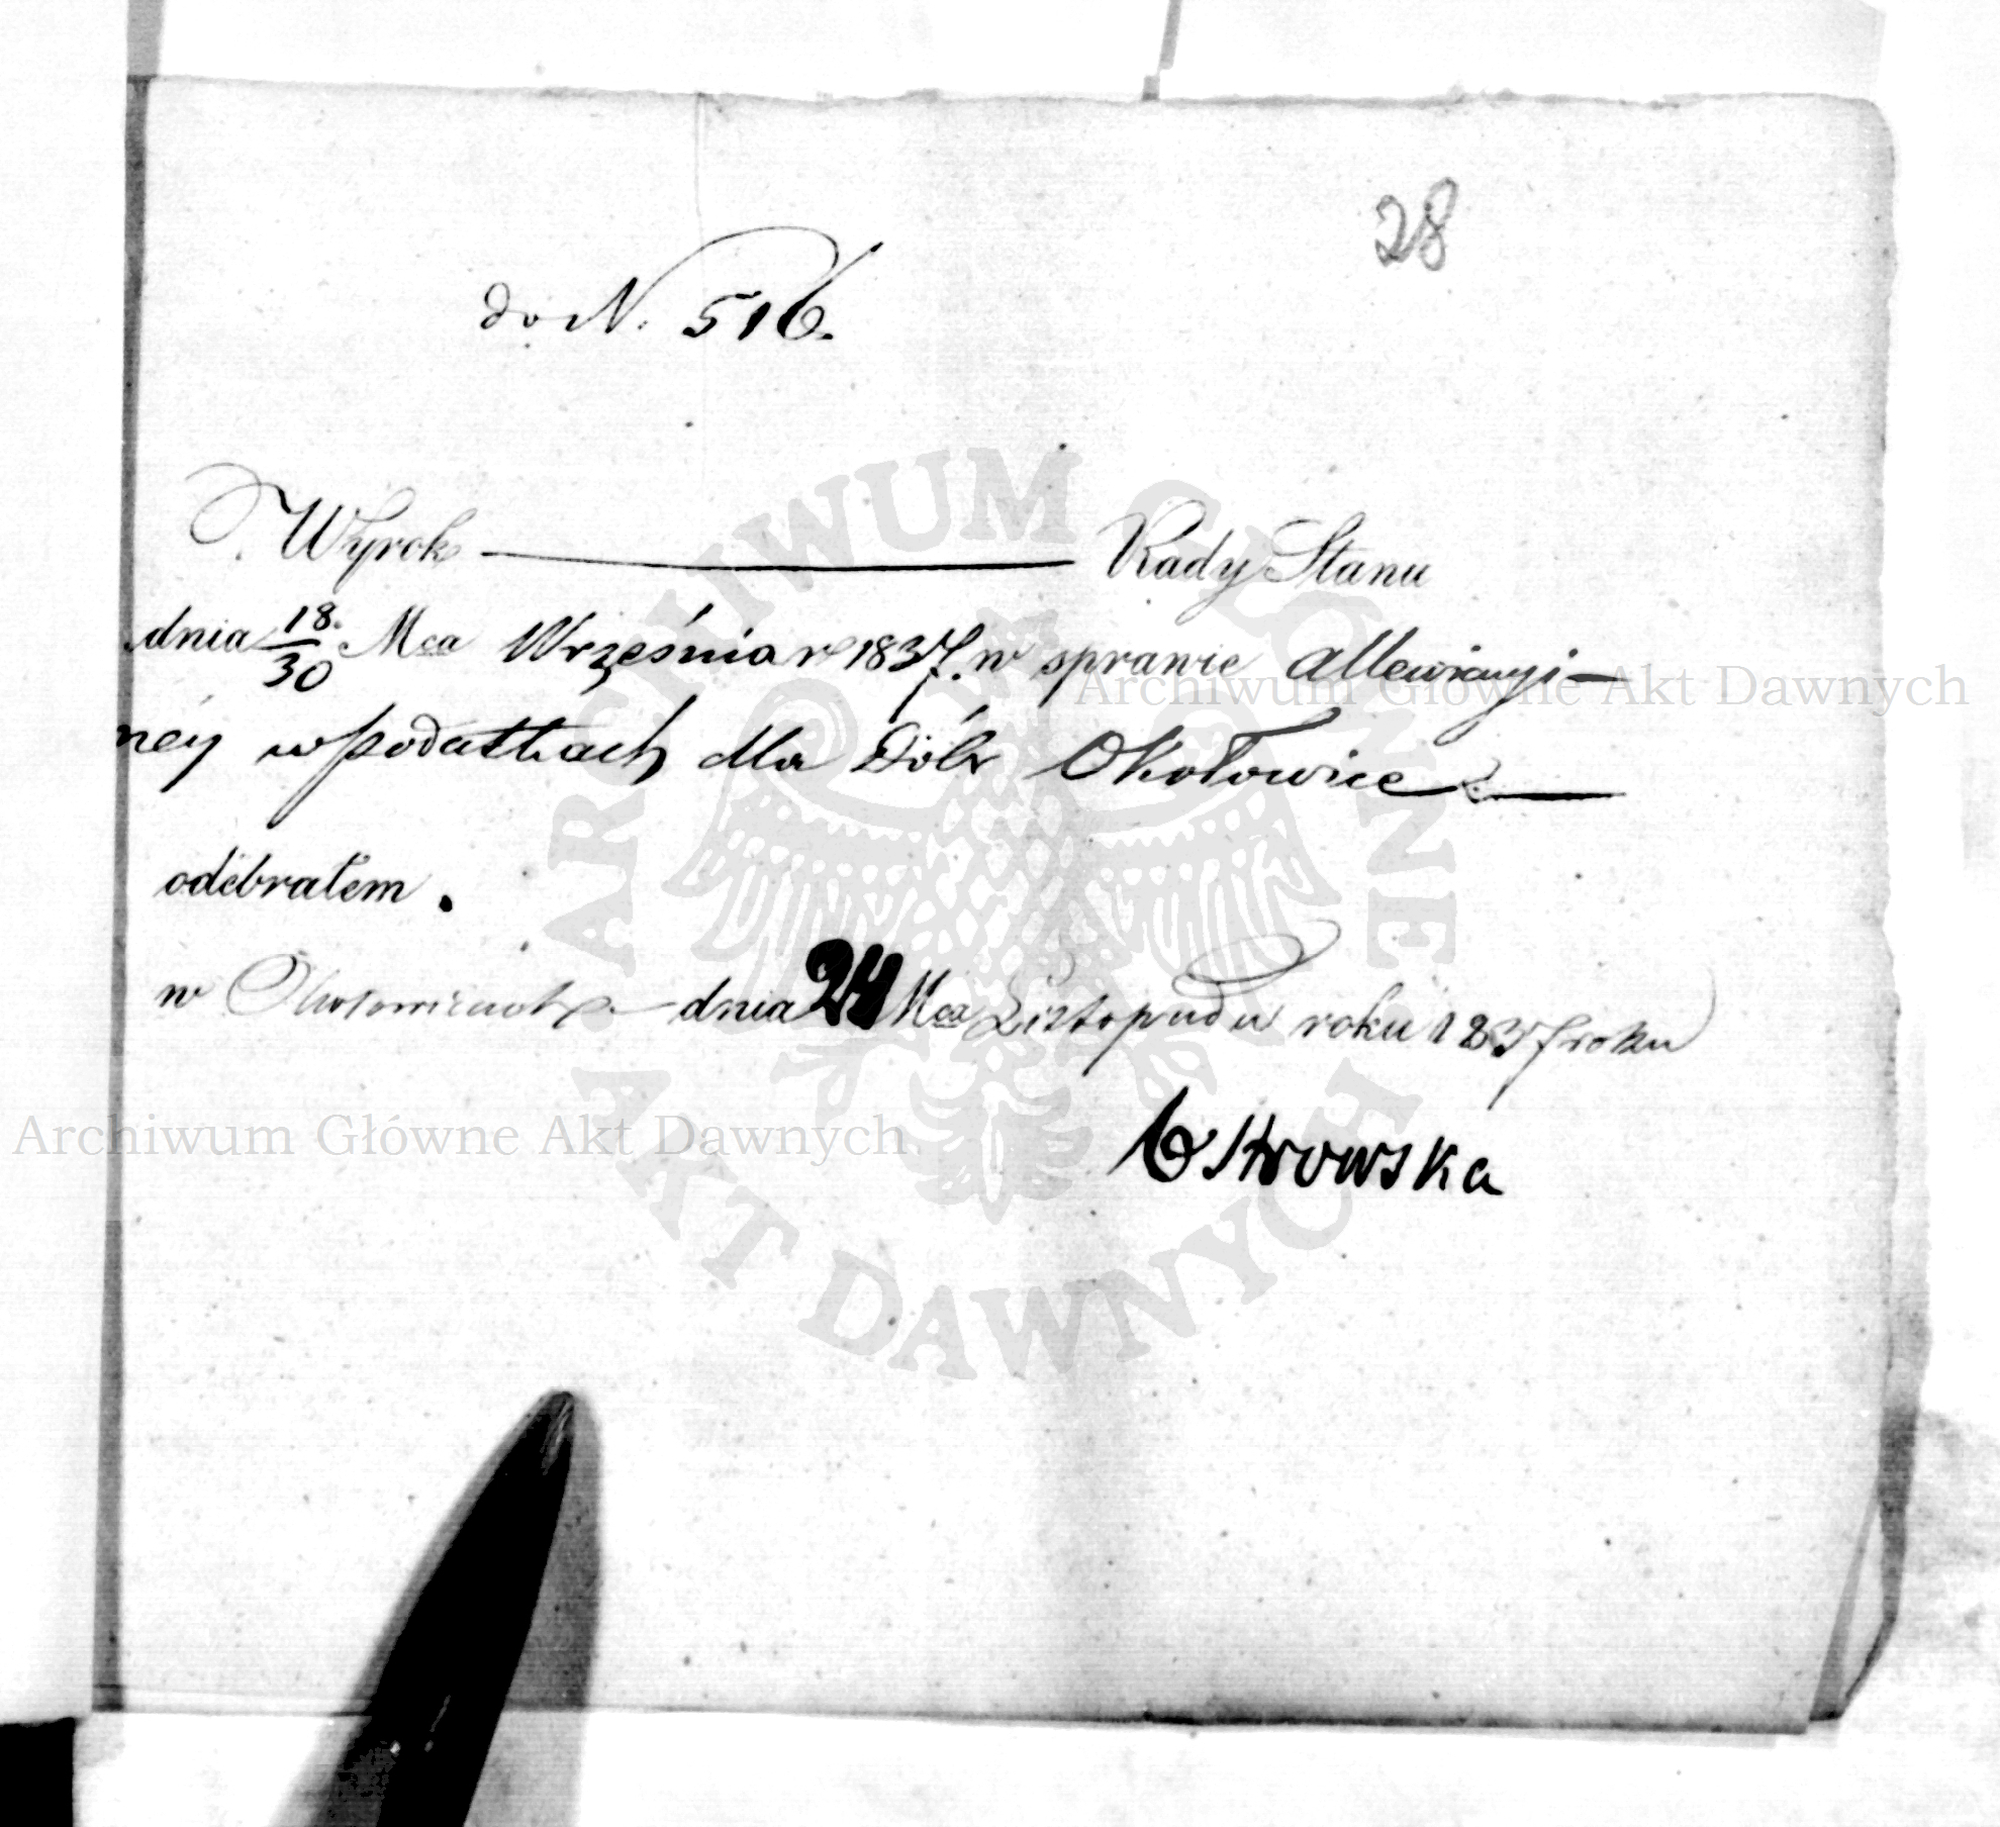 28
do N. 516.
Wyrok Rady Stanu
dnia 18./30 Mca Września r 1837. w sprawie allewiacyi-
ney w podatkach dla Dóbr Okołowice
odebrałem.
w Okołowicach dnia 24 Mca Listopada roku 1837 roku
Ostrowska
ARCHIWUM GŁÓWNE AKT DAWNYCH
Archiwum Główne Akt Dawnych
Archiwum Główne Akt Dawnych